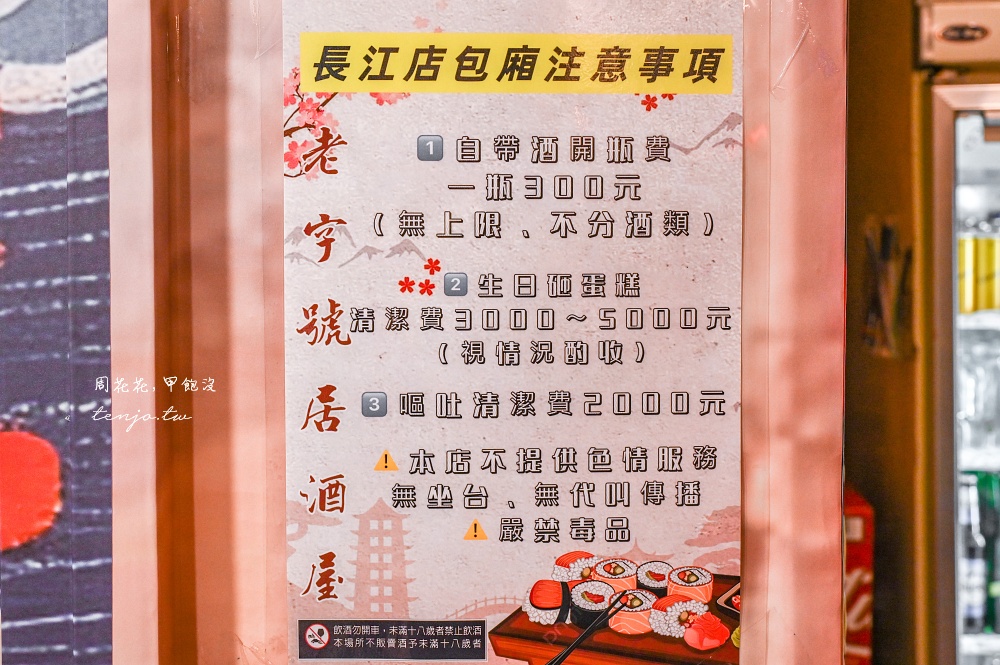 長江店包廂注意事項
老字號居酒屋
1 自帶酒開瓶費
一瓶300元
(無上限、不分酒類)
2 生日砸蛋糕
清潔費3000～5000元
(視情況酌收)
3 嘔吐清潔費2000元
⚠本店不提供色情服務
無坐台、無代叫傳播
⚠嚴禁毒品
飲酒勿開車，未滿十八歲者禁止飲酒
本場所不販賣酒予未滿十八歲者
周花花，甲飽沒
tenjo.tw